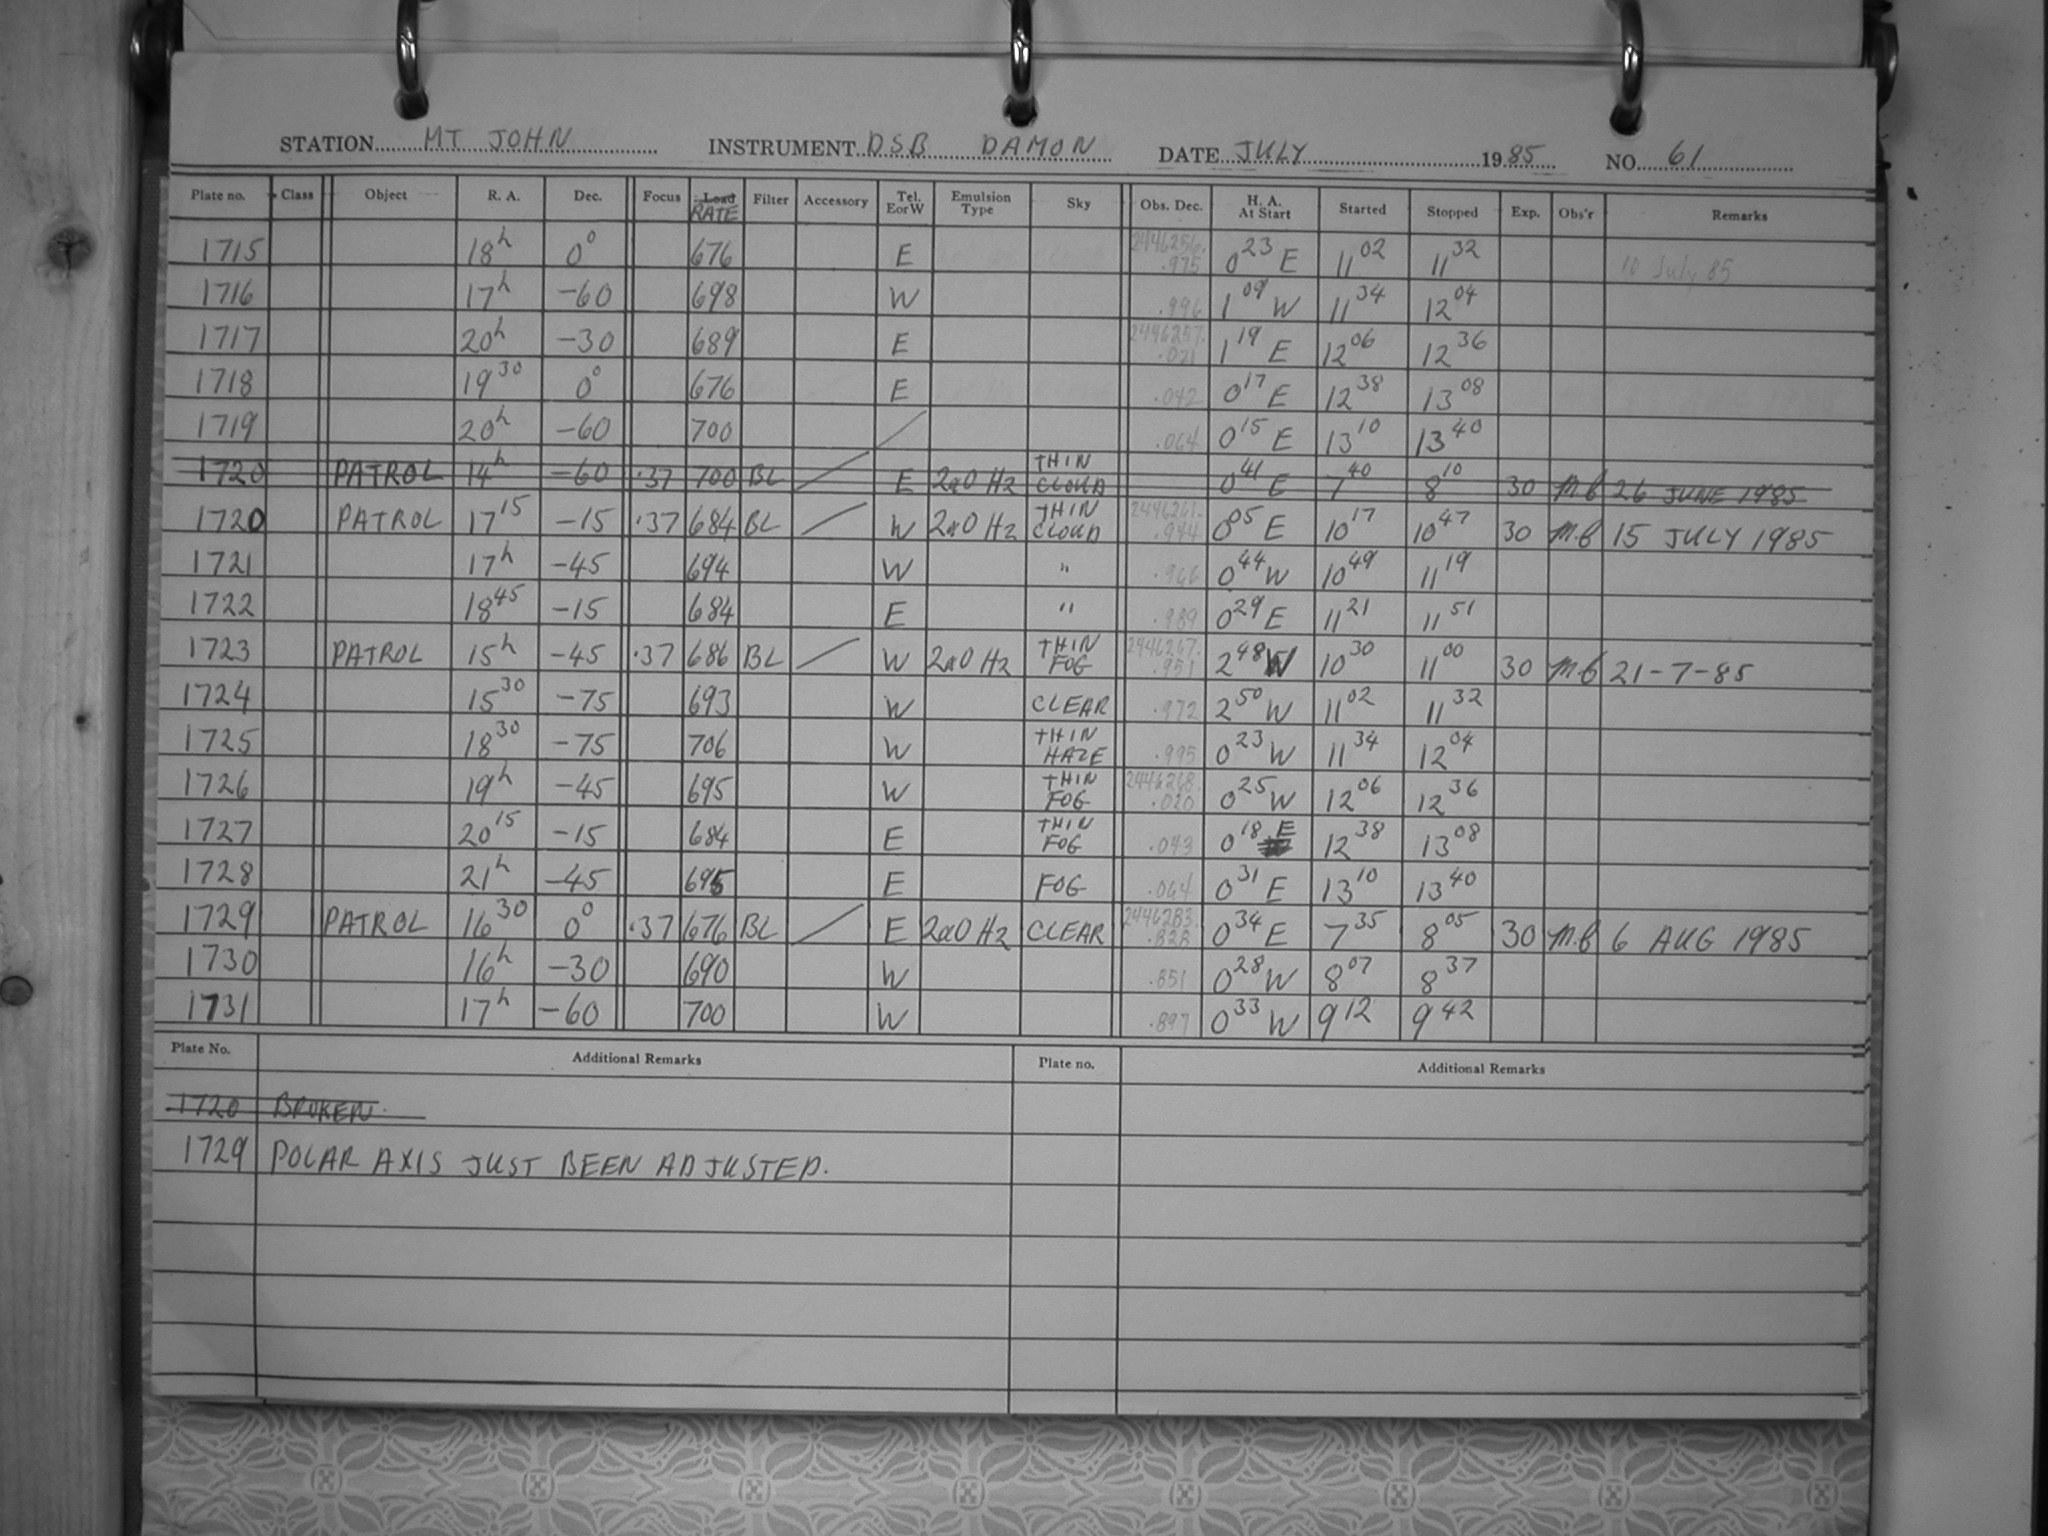 STATION MT JOHN INSTRUMENT DSB DAMON DATE JULY 1985 NO. 61
Plate no. Class Object R. A. Dec. Focus Load RATE Filter Accessory Tel. E or W Emulsion Type Sky Obs. Dec. H. A. At Start Started Stopped Exp. Obs'r Remarks
1715 18h 0° 676 E 2446256. .975 0 23 E 11 02 11 32 10 July 85
1716 17h -60 698 W .996 1 09 W 11 34 12 04
1717 20h -30 689 E 2446257. .021 1 19 E 12 06 12 36
1718 19 30 0° 676 E .042 0 17 E 12 38 13 08
1719 20h -60 700 / .064 0 15 E 13 10 13 40
1720 PATROL 14h -60 .37 700 BL / E 2a0 Hz THIN CLOUD 0 41 E 7 40 8 10 30 M.B 26 JUNE 1985
1720 PATROL 17 15 -15 .37 684 BL / W 2a0 Hz THIN CLOUD 2446261. .944 0 05 E 10 17 10 47 30 M.B 15 JULY 1985
1721 17h -45 694 W " .966 0 44 W 10 49 11 19
1722 18 45 -15 684 E " .989 0 29 E 11 21 11 51
1723 PATROL 15h -45 .37 686 BL / W 2a0 Hz THIN FOG 2446267. .951 2 48 W 10 30 11 00 30 M.B 21-7-85
1724 15 30 -75 693 W CLEAR .972 2 50 W 11 02 11 32
1725 18 30 -75 706 W THIN HAZE .995 0 23 W 11 34 12 04
1726 19h -45 695 W THIN FOG 2446268. .020 0 25 W 12 06 12 36
1727 20 15 -15 684 E THIN FOG .043 0 18 E 12 38 13 08
1728 21h -45 695 E FOG .064 0 31 E 13 10 13 40
1729 PATROL 16 30 0° .37 676 BL / E 2a0 Hz CLEAR 2446283. .828 0 34 E 7 35 8 05 30 M.B 6 AUG 1985
1730 16h -30 690 W .851 0 28 W 8 07 8 37
1731 17h -60 700 W .897 0 33 W 9 12 9 42
Plate No. Additional Remarks Plate no. Additional Remarks
1720 BROKEN.
1729 POLAR AXIS JUST BEEN ADJUSTED.